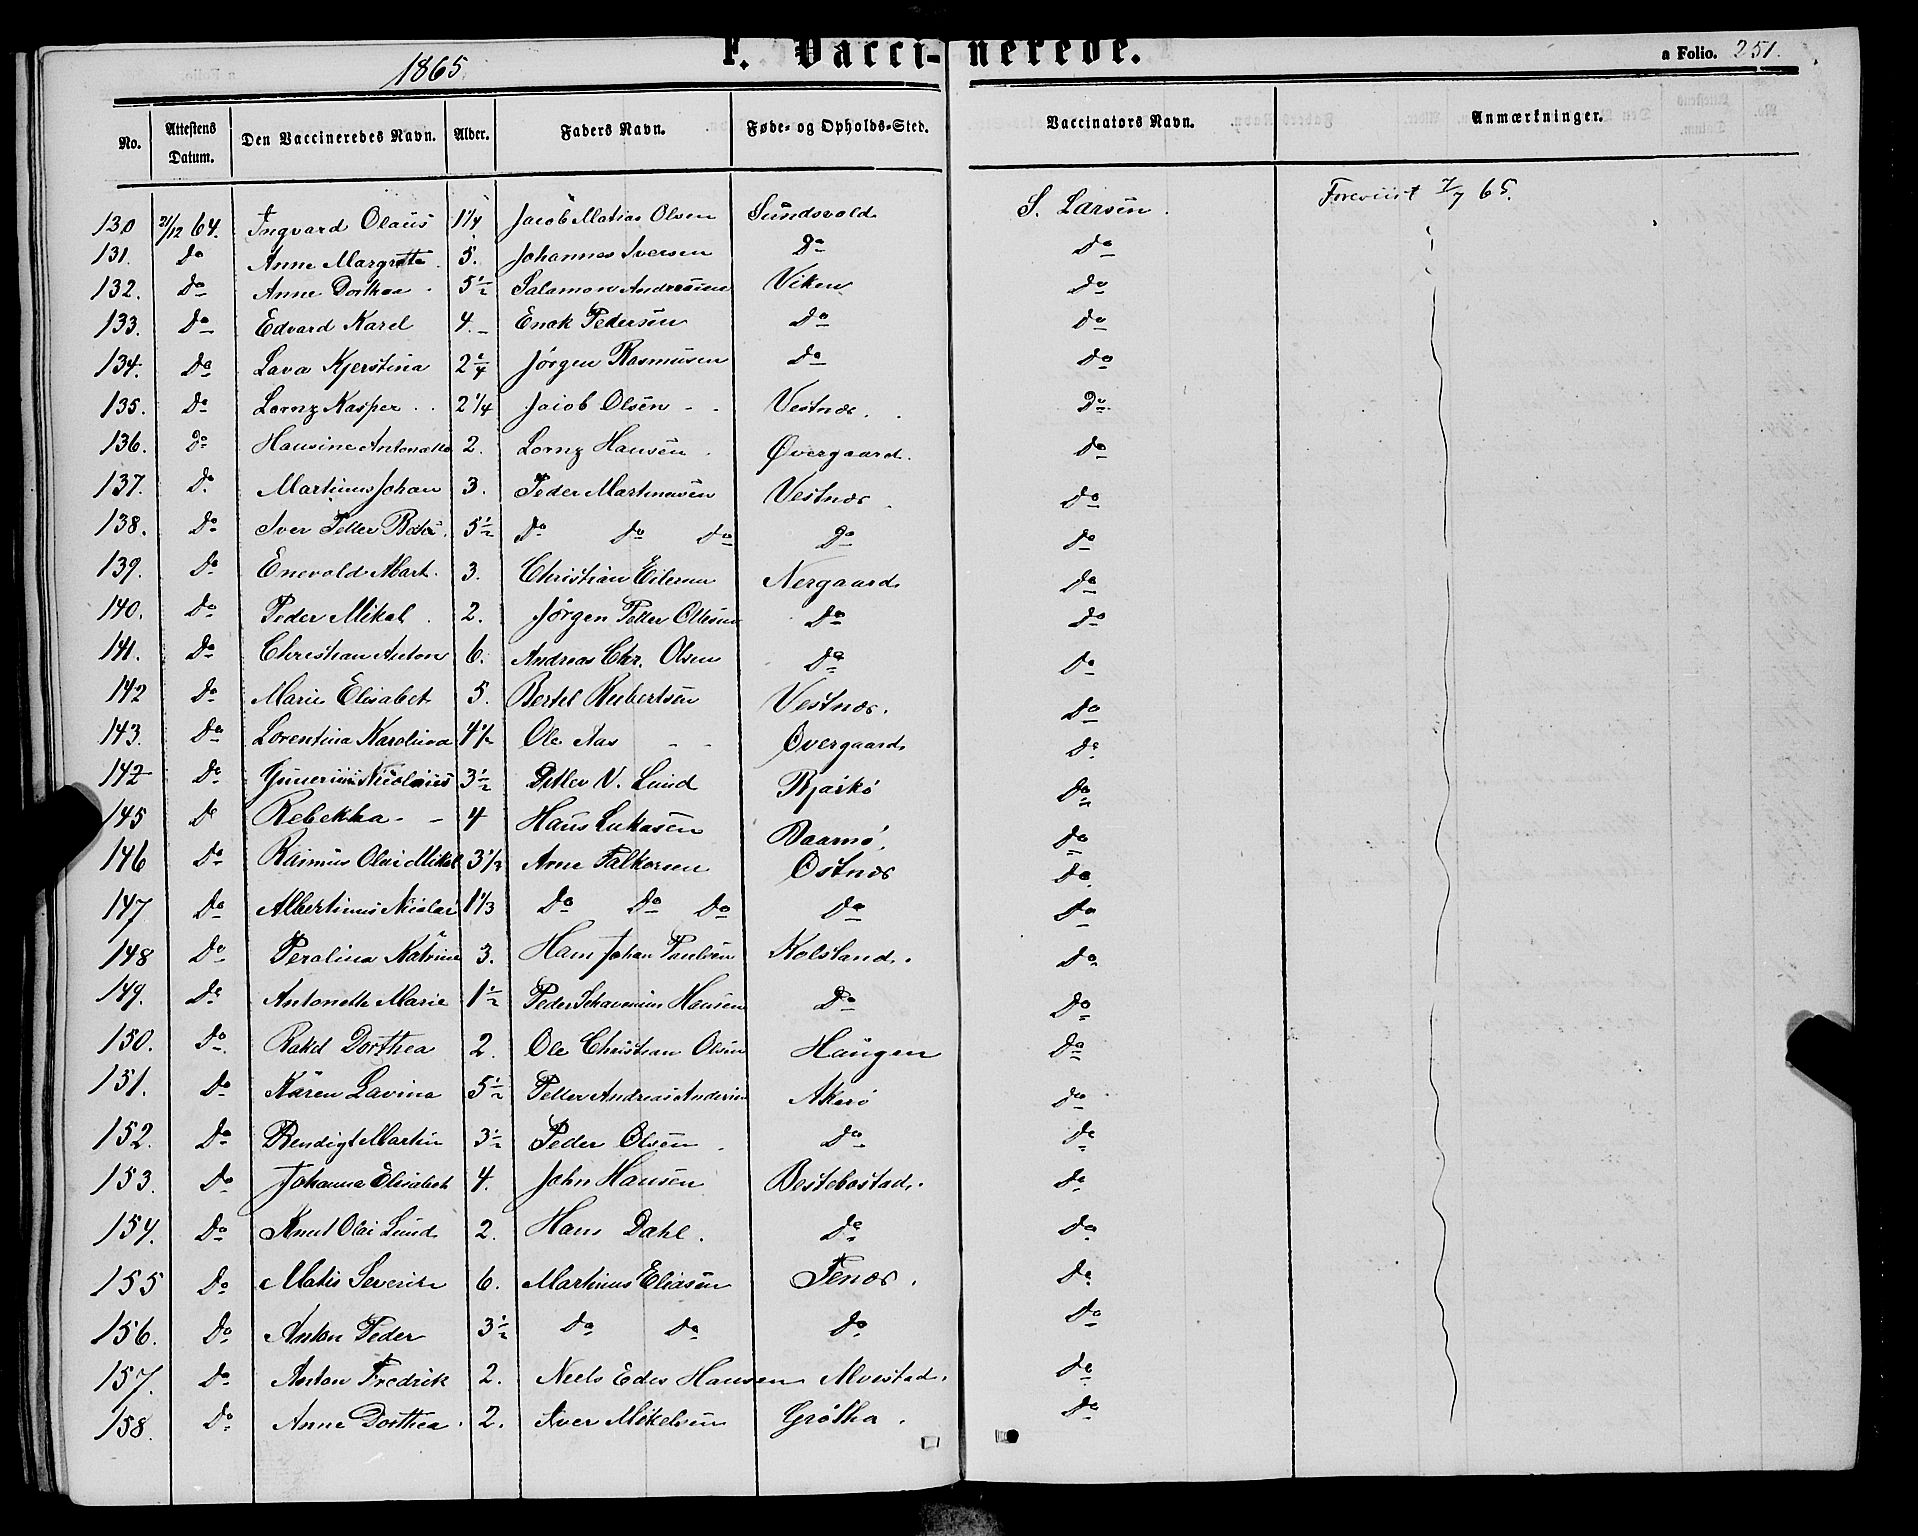 1865
F. Vaccinerede.
a Folio. 251.
No. Attestens Datum. Den Vaccineredes Navn. Alder. Faders Navn. Føde- og Opholds-Sted. Vaccinators Navn. Anmærkninger.
130 21/12 64. Ingvard Olaus 1 1/4 Jacob Matias Olsen Sundsvold S. Larsen. Foreviist 7/7 65.
131. Do Anne Margrette. 5. Johannes Iversen Do Do
132. Do Anne Dorthea 5 1/2 Salamon Andreasen Viken Do
133. Do Edvard Karel 4. Enok Pedersen Do Do
134. Do Lava Kjerstina 2 1/4 Jörgen Rasmusen Do Do
135. Do Lornz Kasper 2 1/4 Jacob Olsen Vestnæs. Do
136. Do Hansine Antonette 2. Lornz Hansen Øvergaard. Do
137. Do Martinus Johan 3. Peder Martinusen Vestnæs. Do
138. Do Iver Petter 5 1/2 Do Do Do Do Do
139. Do Enevold Mart. 3. Christian Eilersen Nergaard. Do
140. Do Peder Mikal 2. Jörgen Petter Ollesen Do Do
141. Do Christian Anton 6. Andreas Chr. Olsen Do Do
142 Do Marie Elisabet 5. Bertel Reibertsen Vestnæs. Do
143. Do Lorentina Karolina 4 1/2 Ole Aas Overgaard. Do
142 Do Nicolaus 3 1/2 Detlev V. Lund Bjarkö Do
145 Do Rebekka 4 Hans Lukasen Do
146 Do Rasmus Olai Mikal 3 1/2 Arne Falkorsen Ostnæs Do
147 Do Albertinus Nicolai 1 1/3 Do Do Do Do Do
148 Do Peralina Katrine 3. Hans Johan Paulsen Kolstand. Do
149. Do Antonette Marie 1 1/2 Peder Schavenius Hansen Do Do
150. Do Rakel Dorthea 2. Ole Christian Olsen Haugen Do
151. Do Karen Lavina 5 1/2 Petter Andreas Andersen Akerö Do
152. Do Bendigt Martin 3 1/2 Peder Olsen Do Do
153. Do Johanna Elisabeth 4. John Hansen Bestebostad. Do
154. Do Knut Olai Lund 2. Hans Dahl. Do Do
155 Do Matis Severin 6. Martinus Eliasen Tenæs. Do
156. Do Anton Peder 3 1/2 Do Do Do Do
157. Do Anton Fredrik 2. Niels Edis Hansen Alvestad. Do
158. Do Anne Dorthea. 2. Iver Mikelsen Grötha. Do